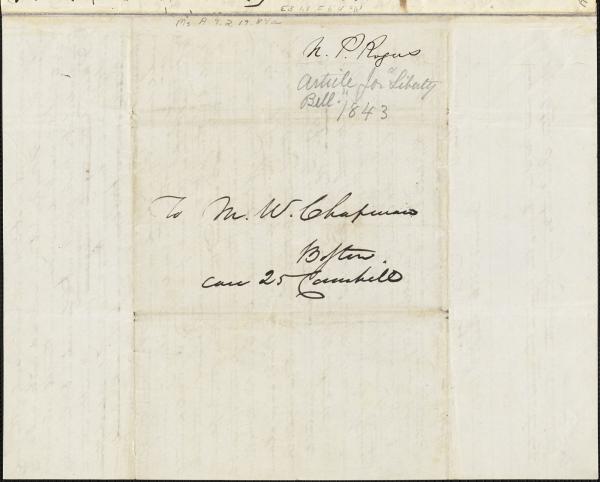 Ms. A. 9. 2. 19. 84a
N. P. Rogers
Article for "Liberty
Bell." 1843
To M. W. Chapman
Boston.
care 25 Cornhill